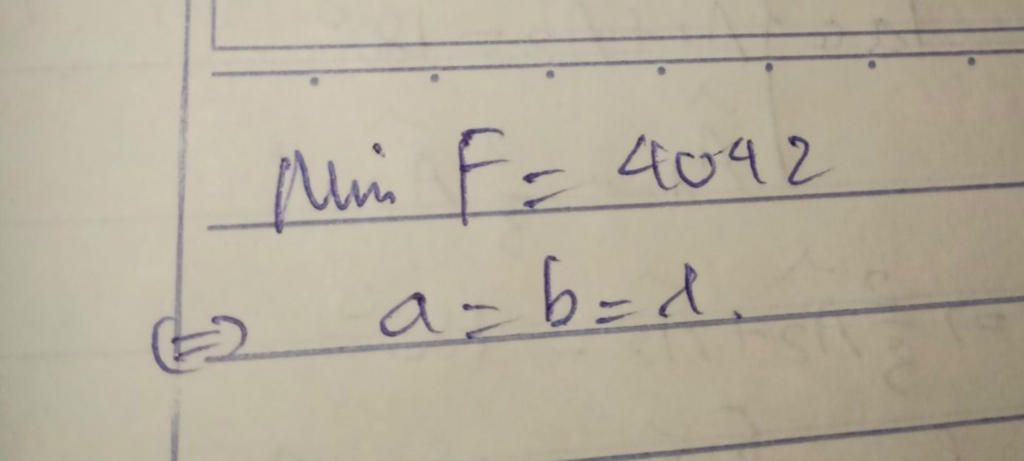 Min F = 4042
(=) a = b = 1.